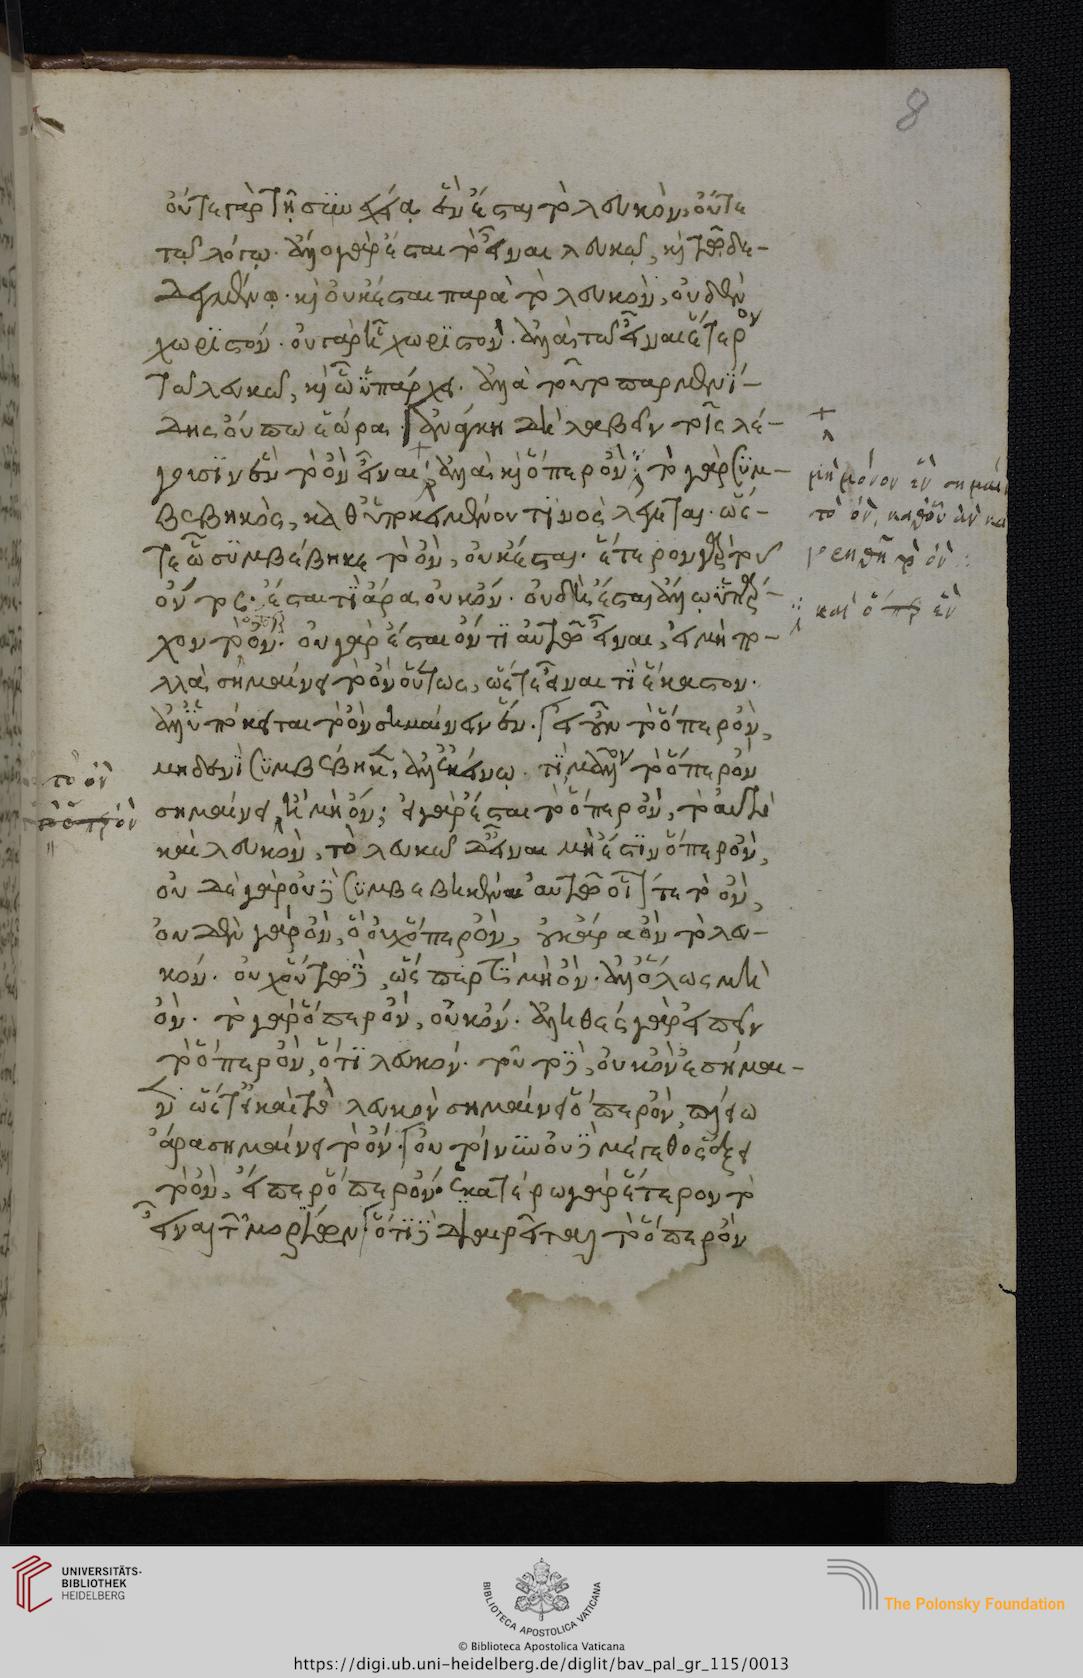 8
οὔτε γὰρ τῇ συνεχείᾳ ἓν ἔσται τὸ λευκὸν, οὔτε
τῷ λόγῳ. ἄλλο γὰρ ἔσται τὸ εἶναι λευκῷ, καὶ τῷ δε-
δεγμένῳ. καὶ οὐκ ἔσται παρὰ τὸ λευκὸν, οὐδὲν
χωριστόν. οὐ γὰρ ᾗ χωριστὸν. ἀλλὰ τῷ εἶναι ἕτερον
τῷ λευκῷ, καὶ ᾧ ὑπάρχει. ἀλλὰ τοῦτο παρμενί-
δης οὔπω ἑώρα. ἀνάγκη δὴ λαβεῖν τοῖς λέ-
γουσιν ἓν τὸ ὂν εἶναι, ἀλλὰ καὶ ὅπερ ὂν. τὸ γὰρ συμ-
βεβηκὸς, καθ' ὑποκειμένου τινὸς λέγεται. ὥσ-
τε ᾧ συμβέβηκε τὸ ὂν, οὐκ ἔσται. ἕτερον γὰρ τοῦ
ὄντος. ἔσται τὶ ἄρα οὐκ ὄν. οὐ δὴ ἔσται ἄλλῳ ὑπάρ-
χον τὸ ὂν. οὐ γὰρ ἔσται ὄν τι αὐτῷ εἶναι, εἰ μὴ πο-
λλὰ σημαίνει τὸ ὂν οὕτως, ὥστε εἶναι τὶ ἕκαστον.
ἀλλ' ὑπόκειται τὸ ὂν σημαίνειν ἓν. εἰ οὖν τὸ ὅπερ ὂν,
μηδενὶ συμβέβηκεν, ἀλλ' ἐκείνῳ. τί μᾶλλον τὸ ὅπερ ὂν
σημαίνει, ἢ μὴ ὄν; εἰ γὰρ ἔσται τὸ ὅπερ ὂν, τὸ αὐτὸ
καὶ λευκὸν, τὸ λευκῷ δ' εἶναι μὴ ἔστιν ὅπερ ὂν,
οὐδὲ γὰρ συμβεβηκέναι αὐτῷ οἷόν τε τὸ ὂν,
οὐδὲν γὰρ ὂν, ὃ οὐχ ὅπερ ὂν, οὐκ ἄρα ὂν τὸ λευ-
κόν. οὐχ οὕτω δὲ, ὥσπερ τὶ μὴ ὂν. ἀλλ' ὅλως μὴ
ὂν. τὸ γὰρ ὅπερ ὂν, οὐκ ὄν. ἀληθὲς γὰρ εἰπεῖν
τὸ ὅπερ ὂν, ὅτι λευκόν. τοῦτο δὲ, οὐκ ὂν ἐσήμαι-
νεν ὥστε καὶ τὸ λευκὸν σημαίνει ὅπερ ὂν, πλείω
ἄρα σημαίνει τὸ ὄν. οὐ τοίνυν οὐδὲ μέγεθος ἕξει
τὸ ὂν, εἴπερ ὅπερ ὂν. ἑκατέρῳ γὰρ ἕτερον τὸ
εἶναι τῶν μορίων ὅτι δὲ διαιρεῖται τὸ ὅπερ ὂν
μὴ μόνον ἓν σημαίν
τὸ ὂν, καθ' οὗ ἂν κα
τηγορηθῇ τὸ ὂν
καὶ ὅπερ ἓν
τὸ ὂν
τὸ ὅπερ ὂν
UNIVERSITÄTS-
BIBLIOTHEK
HEIDELBERG
BIBLIOTECA APOSTOLICA VATICANA
The Polonsky Foundation
© Biblioteca Apostolica Vaticana
https://digi.ub.uni-heidelberg.de/diglit/bav_pal_gr_115/0013